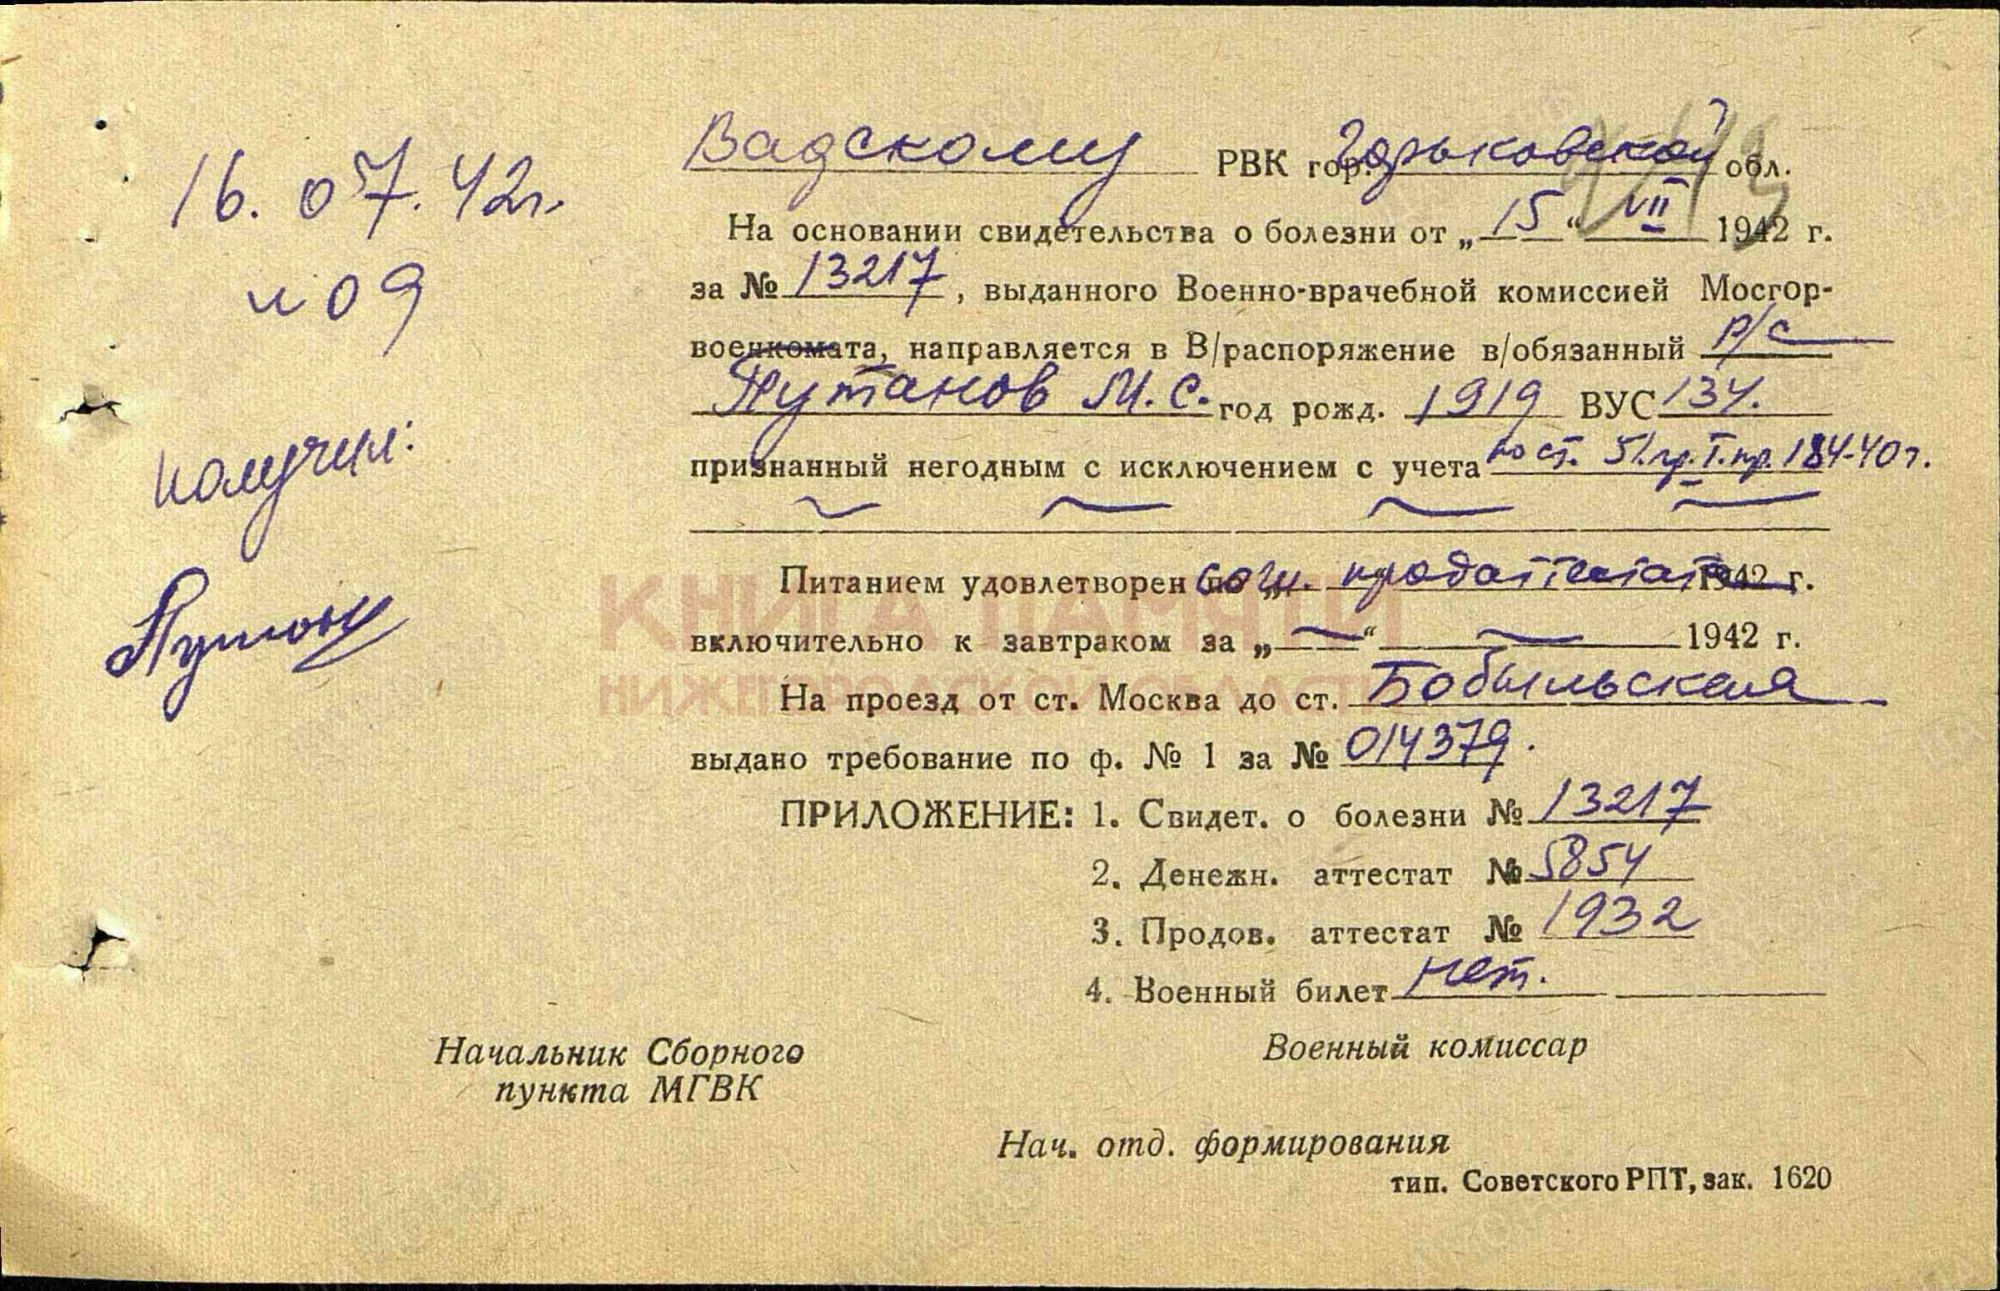 16. 07. 42г.
и 09
получил:
Вадскому РВК гор. Горьковской обл.
На основании свидетельства о болезни от „15“ VII 1942 г.
за № 13217, выданного Военно-врачебной комиссией Мосгор-
военкомата, направляется в В/распоряжение в/обязанный р/с
Путанов М. С. год рожд. 1919 ВУС 134.
признанный негодным с исключением с учета по ст. 51. гр. I. пр. 184-40г.
Питанием удовлетворен по согл. продаттестата 1942 г.
включительно к завтраком за „—“ — 1942 г.
На проезд от ст. Москва до ст. Бобыльская
выдано требование по ф. № 1 за № 014379.
ПРИЛОЖЕНИЕ: 1. Свидет. о болезни № 13217
2. Денежн. аттестат № 5854
3. Продов. аттестат № 1932
4. Военный билет нет.
Начальник Сборного
пункта МГВК
Военный комиссар
Нач. отд. формирования
тип. Советского РПТ, зак. 1620
КНИГА ПАМЯТИ
НИЖЕГОРОДСКОЙ ОБЛАСТИ